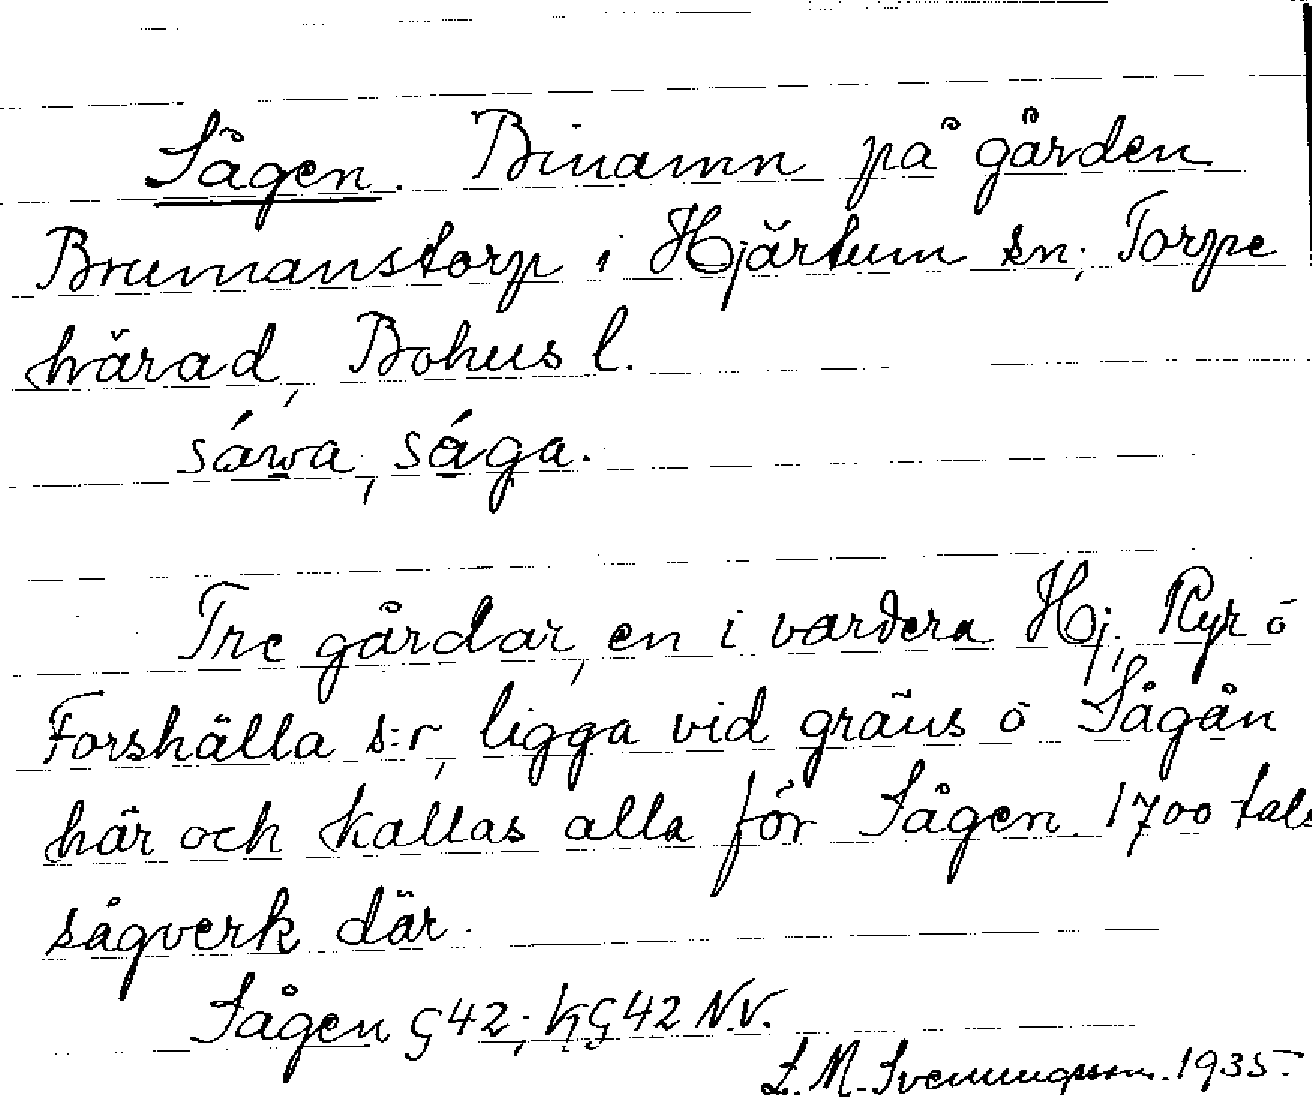 Sågen. Binamn på gården
Brumanstorp i Hjärtum sn; Torpe
härad, Bohus l.
sáwa, ság̣a.
Tre gårdar, en i vardera Hj, Ryr o
Forshälla s:r, ligga vid gräns o Sågån
här och kallas alla för Sågen. 1700 tals
sågverk där.
Sågen G42; KG42 N.V.
L. M. Svenungsson. 1935.